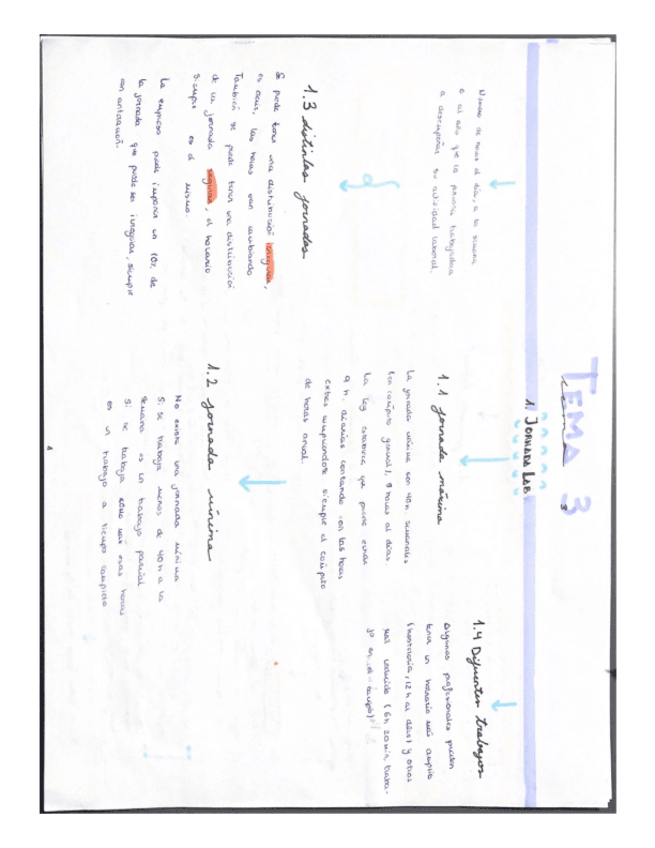 TEMA 3
tema 3
1. JORNADA LAB
Número de horas al día, a la semana
o al año que la persona trabajadora
a desempeñar su actividad laboral.
1.1 jornada máxima
La jornada máxima son 40h semanales
(en cómputo general), 9 horas al días.
La ley establece que puede echar
9 h. diarias contando con las horas
extras cumpliendose siempre el computo
de horas anual.
1.2 jornada mínima
No existe una jornada mínima
Si se trabaja menos de 40h a la
semana es un trabajo parcial
Si se trabaja esas horas
es un trabajo a tiempo completo
1.3 distintas jornadas
Se puede tener una distribución irregular,
es decir, las horas van cambiando
También se puede tener una distribución
de la jornada regular, el horario
siempre es el mismo.
La empresa puede imponer un 10% de
la jornada que puede ser irregular, siempre
con antelación.
1.4 Diferentes trabajos
Algunas profesionales pueden
tener un horario más amplio
(hostelería, 12h al días) y otros
más reducido (6h 20min, traba-
jo en el campo)